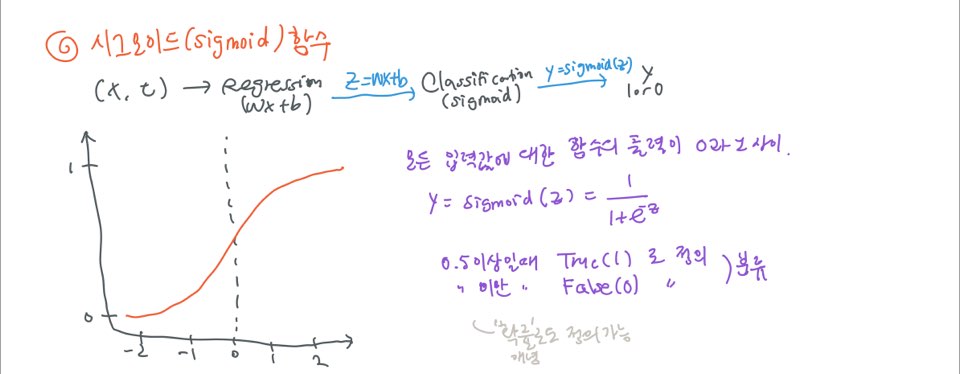 ⑥ 시그모이드(sigmoid) 함수
(x, t) → Regression (Wx+b) z=Wx+b → Classification (sigmoid) y=sigmoid(z) → y 1 or 0
모든 입력값에 대한 함수의 출력이 0과 1 사이.
y = sigmoid(z) = 1 / 1+e^-z
0.5 이상일때 True(1) 로 정의
" 미만 " False(0) " ) 분류
'확률'로도 정의가능
개념
1
0
-2 -1 0 1 2